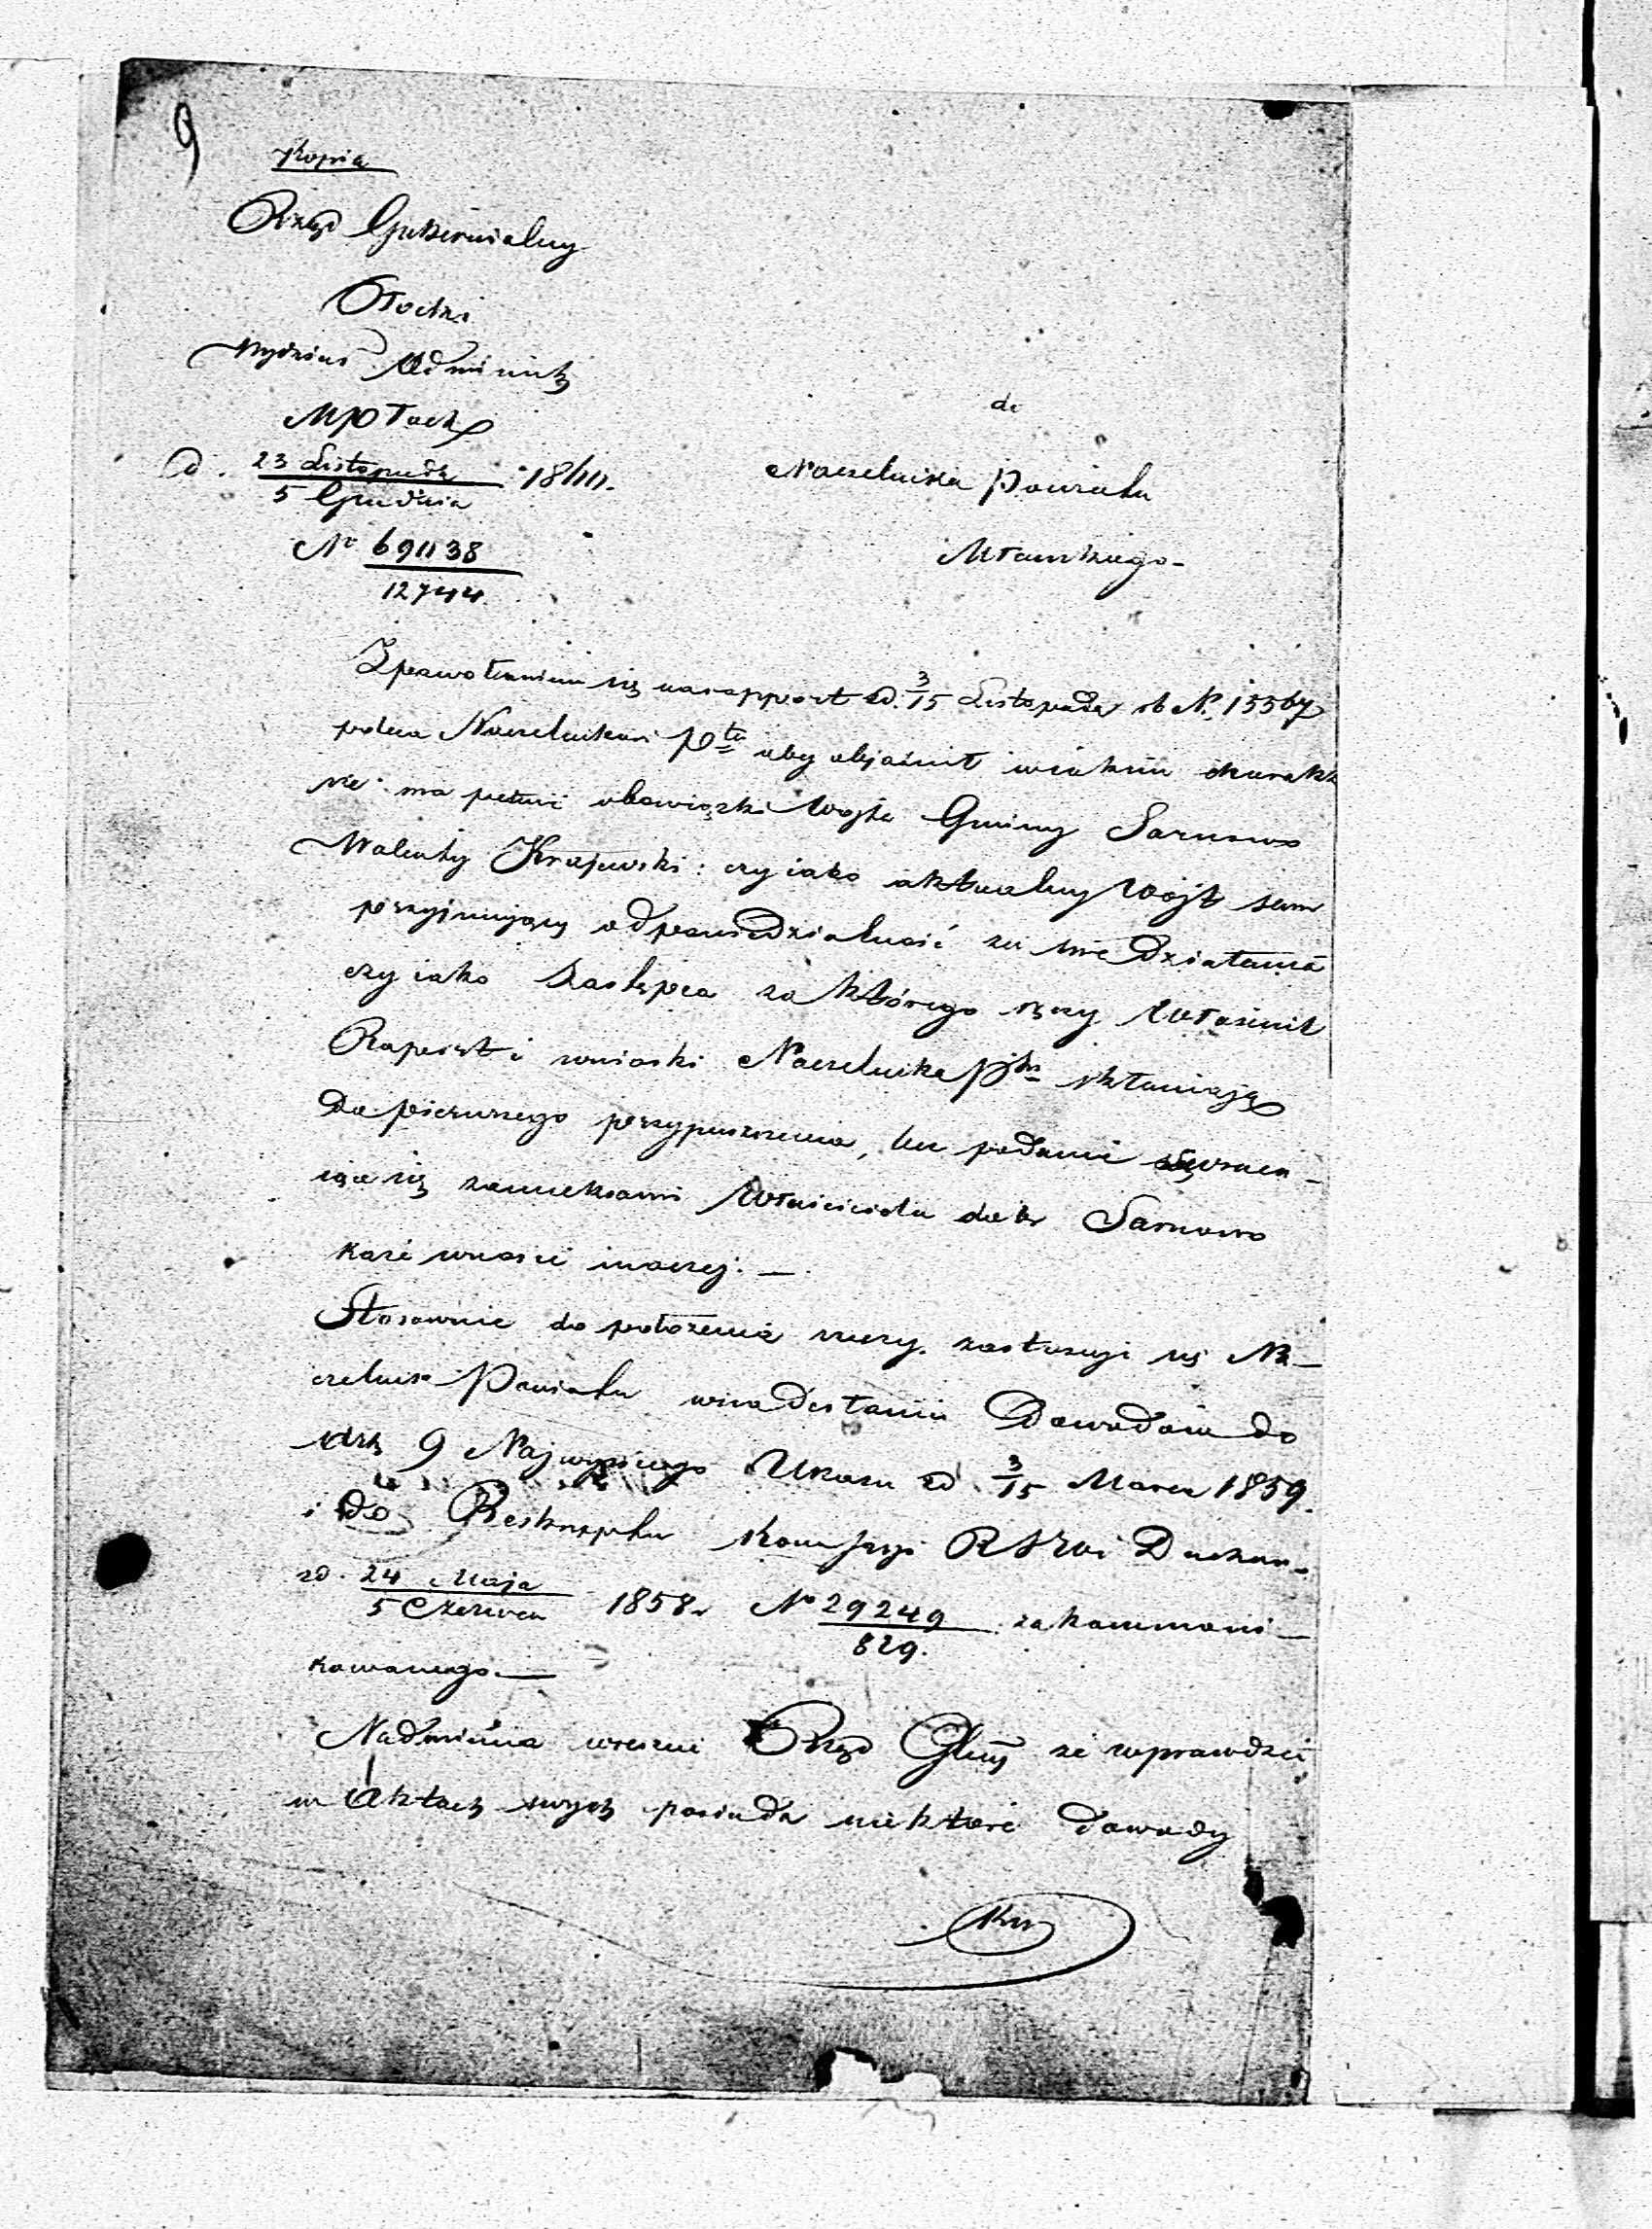 9
Kopia
Rząd Gubernialny
Płocki
Wydział Administ
w Płock
d. 23 Listopada / 5 Grudnia 18
do
Naczelnika Powiatu
Mławskiego
No 691138 / 12744
Z powołaniem się na rapport d. 3/15 Listopada rb N. 15567
poleca Naczelnikowi Ptu aby objaśnił w jakim charakt
rze ma pełnić obowiązki Wójta Gminy Sarnowo
Walenty Krajewski: czy iako aktualny Wójt sam
przyjmujący odpowiedzialność za swe działania
czy iako Zastępca za którego ręczy Właścicil
Raport i wnioski Naczelnika Ptu skłaniają
do pierwszego przypuszczenia, lecz podanie
się zamieksami Właściciela dóbr Sarnowo
każe wnosić inaczej. —
Stosownie do położenia rzeczy zastosuje się Na-
czelnik Powiatu w nadesłaniu Dowodów do
9 Najwyższego Ukazu d. 3/15 Marca 1859.
i do Reskryptu Kommissyi RSW i Duchow-
zd. 24 Maja / 5 Czerwca 1858 r No 29249 / 829. zakommuni-
kowanego. —
Nadmienia wreszcie Rząd Glny że wprawdzie
w Aktach swych posiada niektóre dowody